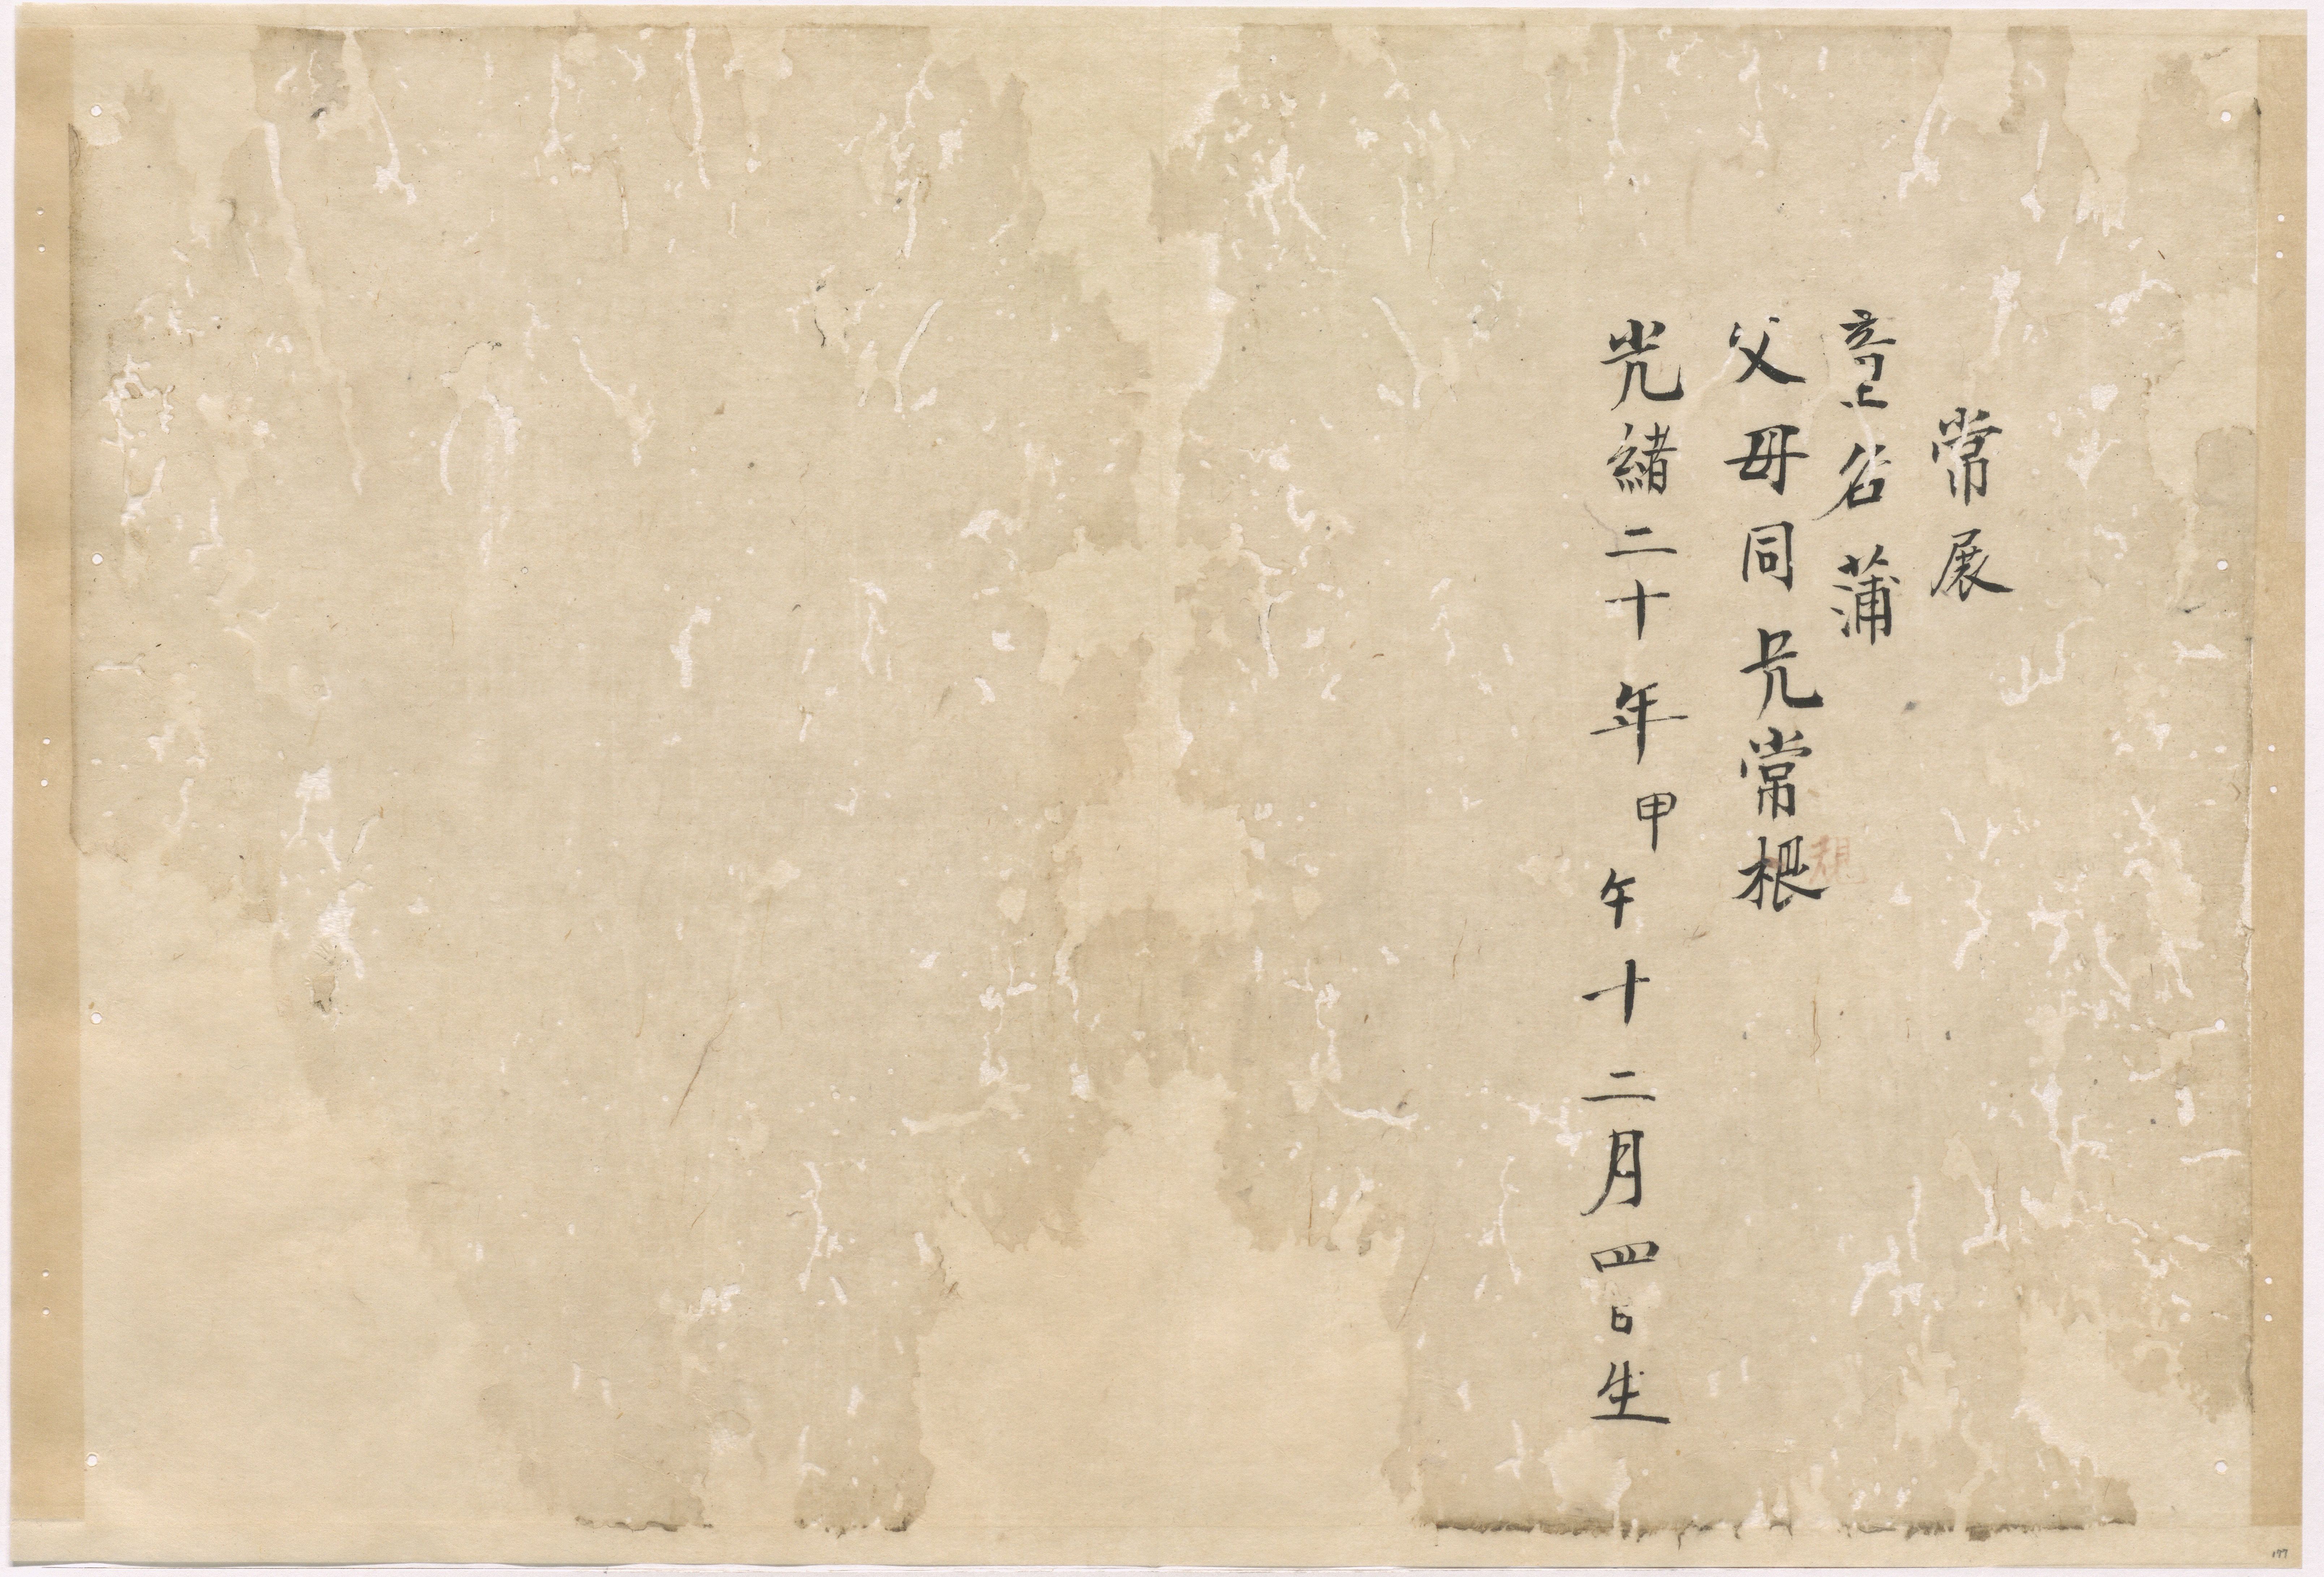 常展
上名蒲
父母同兄常根
光緒二十年甲午十二月四日生
177